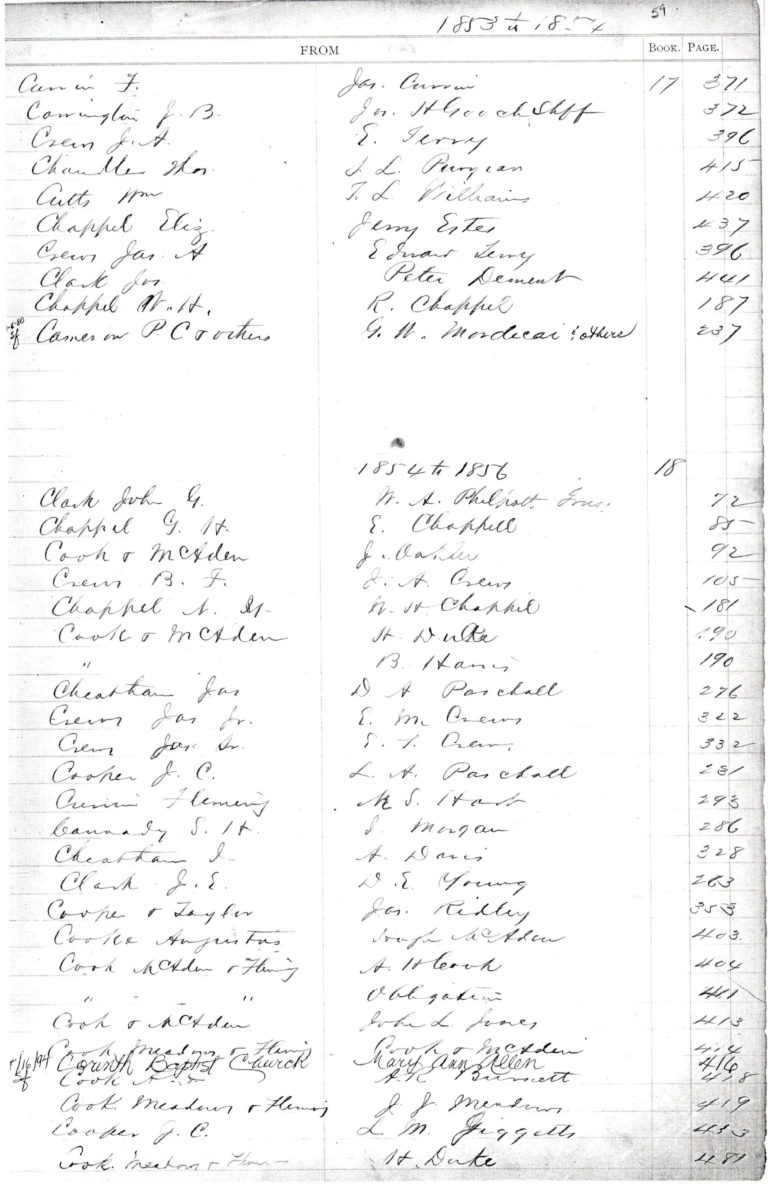 59
1853 to 1854
FROM BOOK. PAGE.
Currin F. Jas. Currin 17 371
Carrington J. B. Jos. H Gooch Shff 372
Crews J. A. E. Terry 396
Chandler Thos. J. L. Puryear 415
Cutts Wm T. L. Williams 420
Chappel Eliz. Jerry Estes 437
Crews Jas. A Edward Terry 396
Clark Jos Peter Dement 441
Chappel W. H. R. Chappel 187
Cameron P. C & others G. W. Mordecai & others 237
1854 to 1856 18
Clark John G. W. A. Philpott Trus. 72
Chappel G. H. E. Chappell 85
Cook & McAden J. Oakley 92
Crews B. F. J. A. Crews 105
Chappel N. W. H. Chappel 181
Cook & McAden H. Duke 190
" B. Harris 190
Cheatham Jas D A Paschall 276
Crews Jas Jr. E. M. Crews 322
Crews Jas Sr. E. T. Crews 332
Cooper J. C. L. A. Paschall 231
Currin Fleming M S. Hart 293
Cannady S. H. J. Morgan 286
Cheatham I. A. Davis 328
Clark J. E. D. E. Young 263
Cooper & Taylor Jas. Ridley 353
Cooke Augustus Hugh McAden 403
Cook McAden & Fleming A. H Cook 404
" " " Obligation 411
Cook & McAden John L Jones 413
Cook Meadows & Fleming Cook & McAden 414
Corinth Baptist Church Mary Ann Allen 416
Cook A. A. R. Burnett 418
Cook. Meadows & Fleming J. J Meadows 419
Cooper J. C. L. M. Jiggetts 433
Cook. Meadow & H. Duke 481